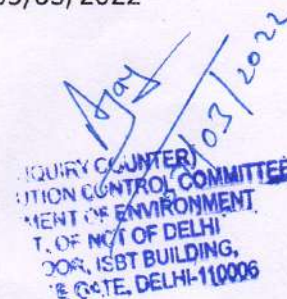 /03, 2022
/03/2022
IQUIRY COUNTER)
UTION CONTROL COMMITTEE
MENT OF ENVIRONMENT
T. OF NCT OF DELHI
OOR, ISBT BUILDING,
E GATE, DELHI-110006